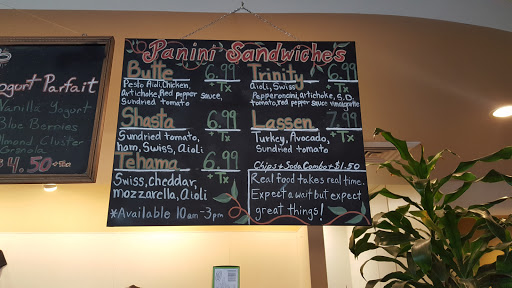 Yogurt Parfait
Vanilla Yogurt
Blue Berries
Almond Cluster
Granola
4.50
Panini Sandwiches
Butte 6.99 +Tx
Pesto Aioli, Chicken,
Artichoke, Red pepper sauce,
Sundried tomato
Shasta 6.99 +Tx
Sundried tomato,
ham, Swiss, aioli
Tehama 6.99 +Tx
Swiss, cheddar,
mozzarella, aioli
*Available 10am-3pm
Trinity 6.99 +Tx
Aioli, Swiss,
Papperoncini, artichoke, S.D.
tomato, red pepper sauce vinaigrette
Lassen 7.99 +Tx
Turkey, Avocado,
Sundried tomato
Chips + Soda Combo + $1.50
Real food takes real time.
Expect a wait but expect
great things!